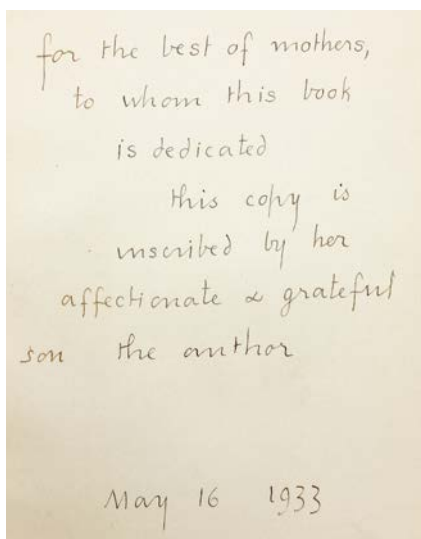 for the best of mothers,
to whom this book
is dedicated
this copy is
inscribed by her
affectionate & grateful
son the author
May 16 1933